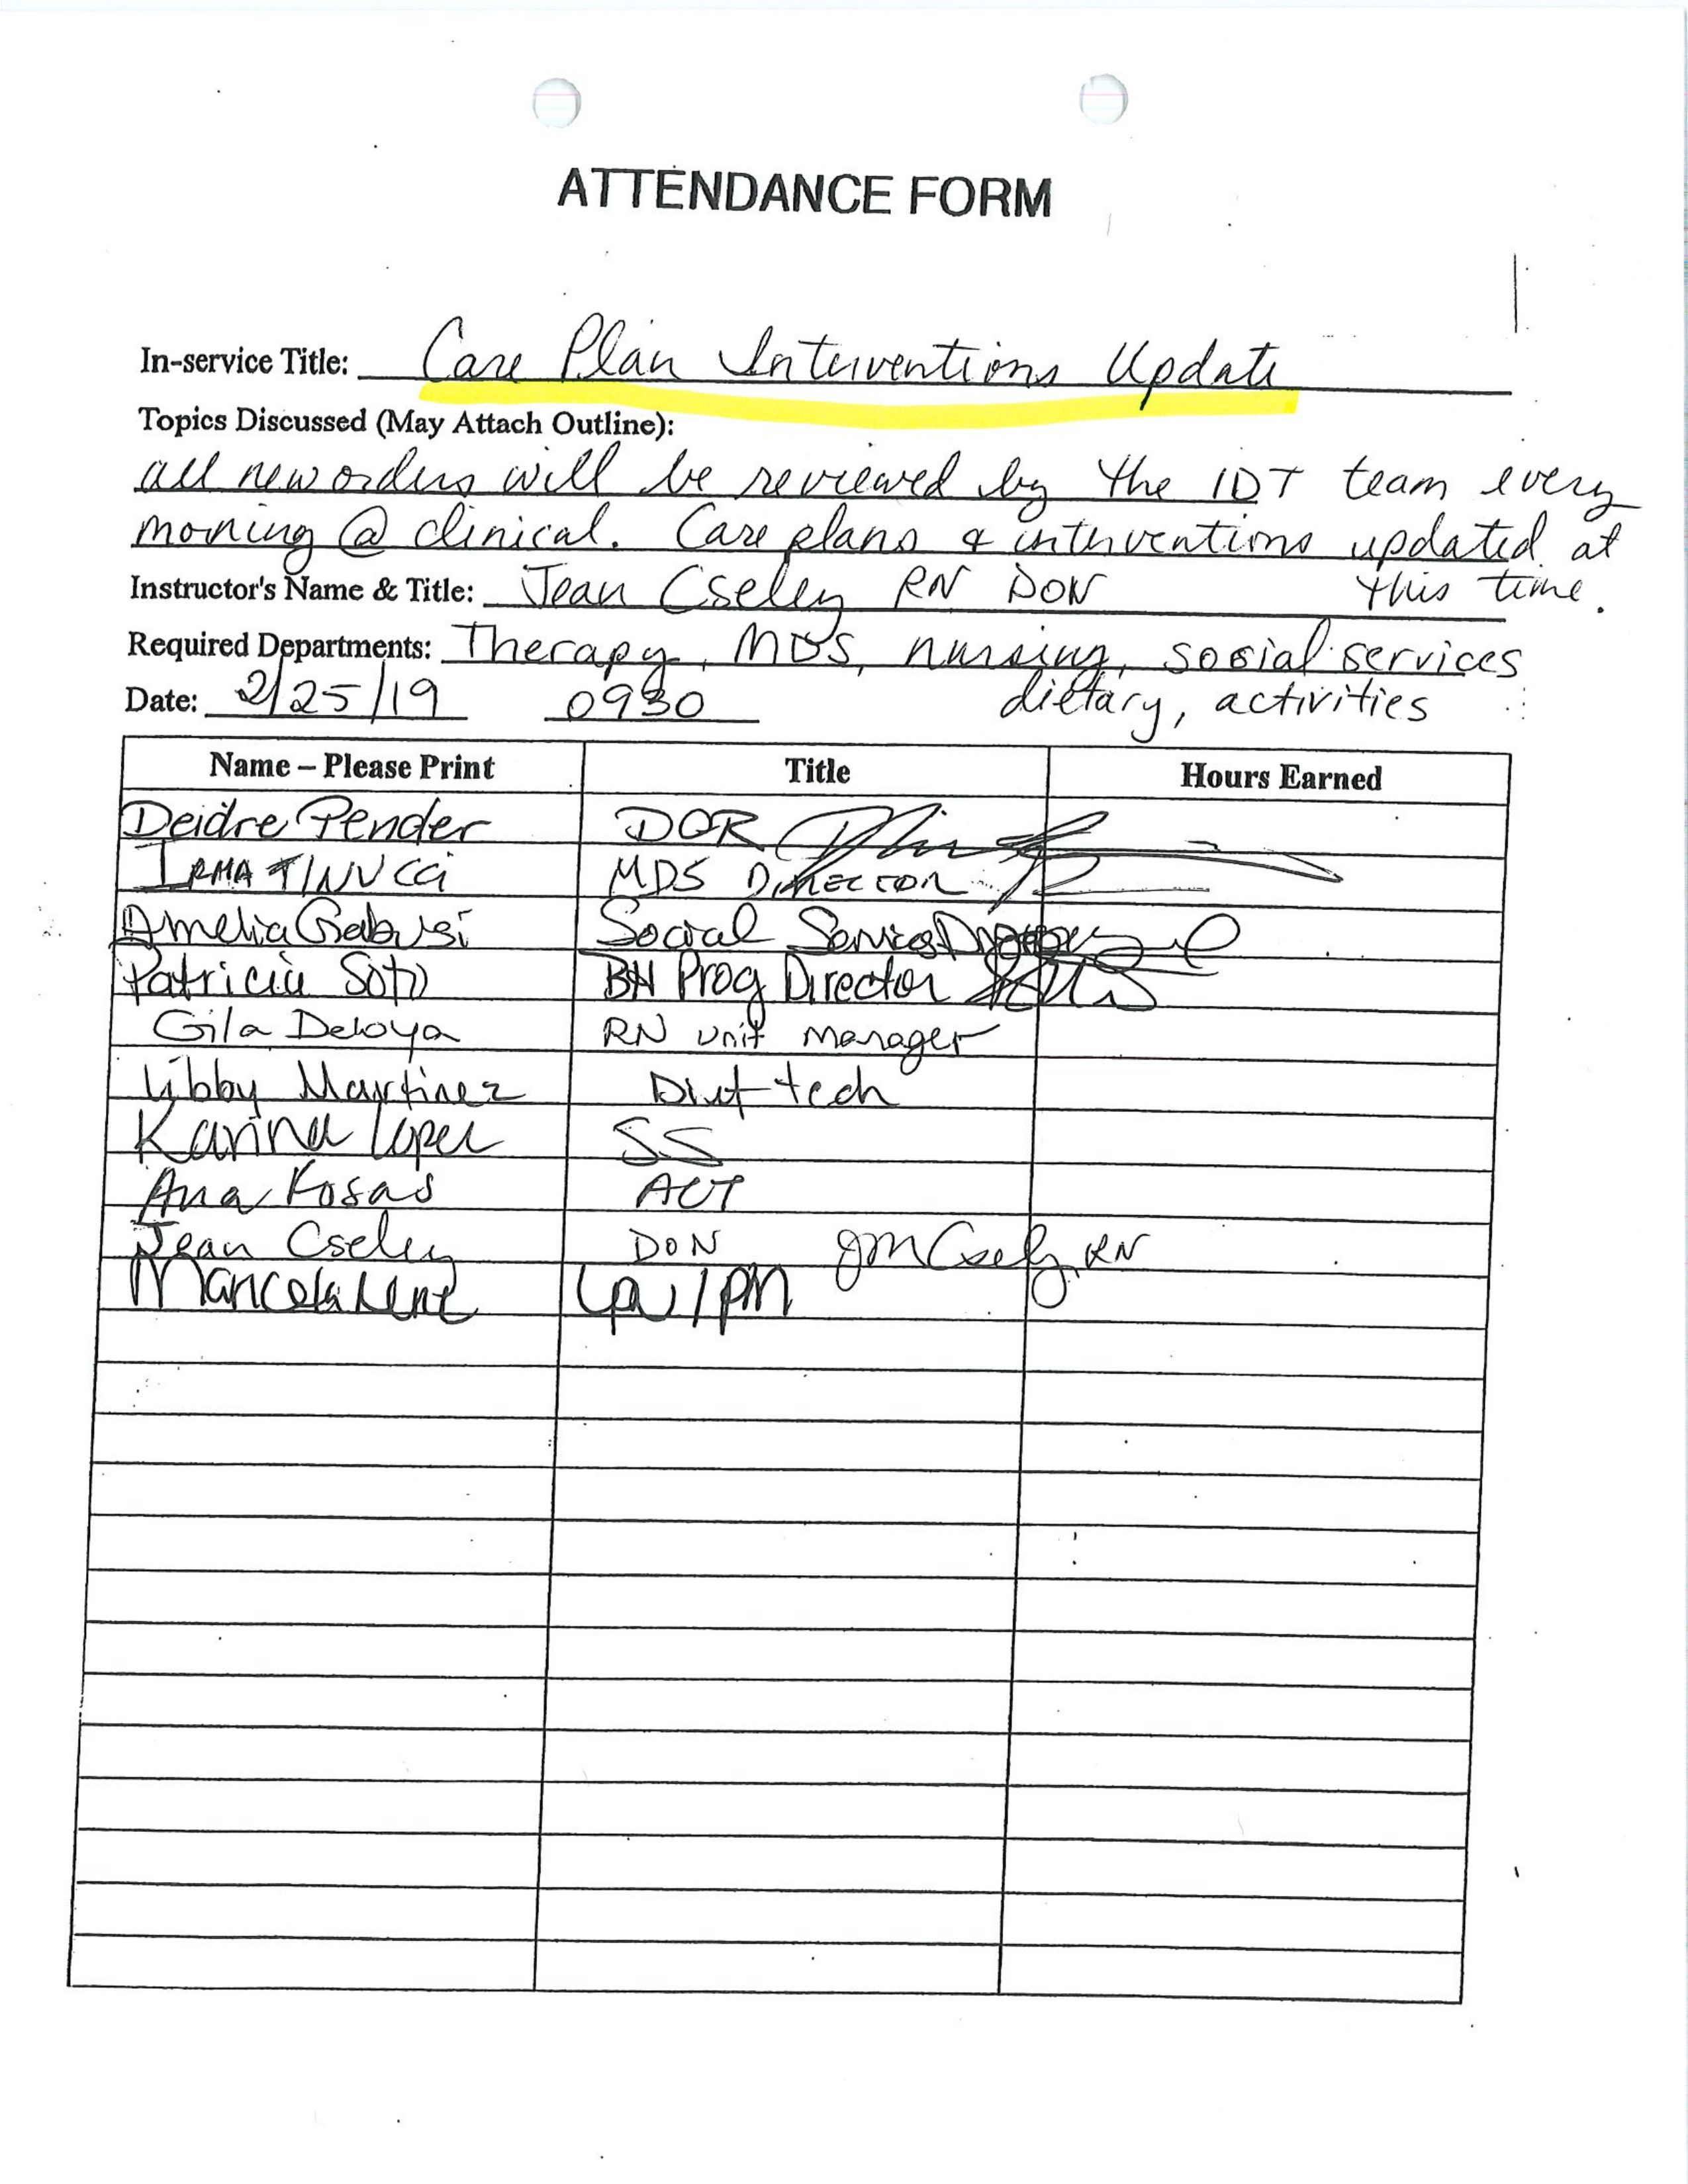 ATTENDANCE FORM
In-service Title: Care Plan Interventions Update
Topics Discussed (May Attach Outline):
all new orders will be reviewed by the IDT team every
morning @ clinical. Care plans & interventions updated at
this time.
Instructor's Name & Title: Jean Cseley RN DON
Required Departments: Therapy, MDS, nursing, social services
dietary, activities
Date: 2/25/19 0930
Name – Please Print Title Hours Earned
Deidre Pender DOR
IRMA TINUCCi MDS DIRECTOR
Amelia Gabusi Social Services
Patricia Soto BH Prog Director
Gila Deloya RN unit manager
Libby Martinez Diet tech
Karina Lopez SS
Ana Rosas ACT
Jean Cseley DON JM Cseley, RN